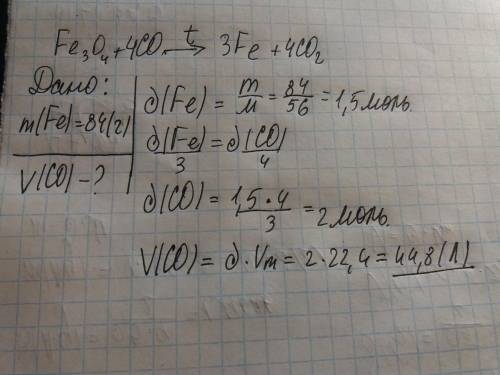 Fe₃O₄ + 4CO →(t) 3Fe + 4CO₂
Дано:
m(Fe) = 84(г)
V(CO) - ?
∂(Fe) = m/M = 84/56 = 1,5 моль.
∂(Fe)/3 = ∂(CO)/4
∂(CO) = 1,5 • 4/3 = 2 моль.
V(CO) = ∂ • Vm = 2 • 22,4 = 44,8(л)